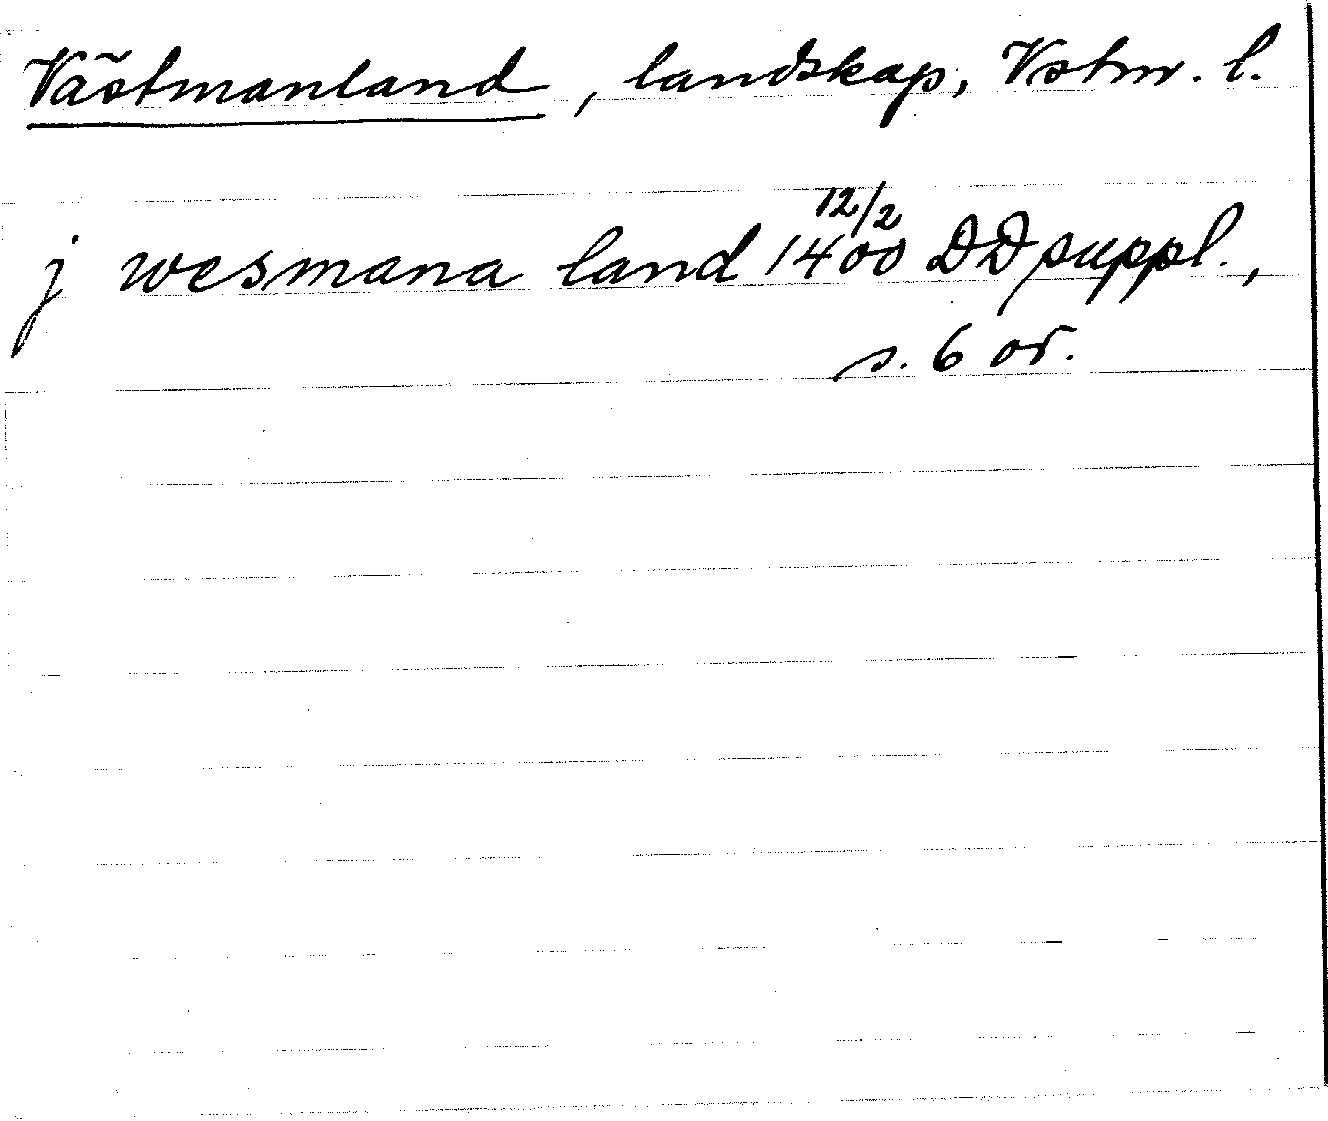 Västmanland, landskap, Vstm. l.
j wesmana land 12/2 1400 DD suppl.,
s. 6 or.